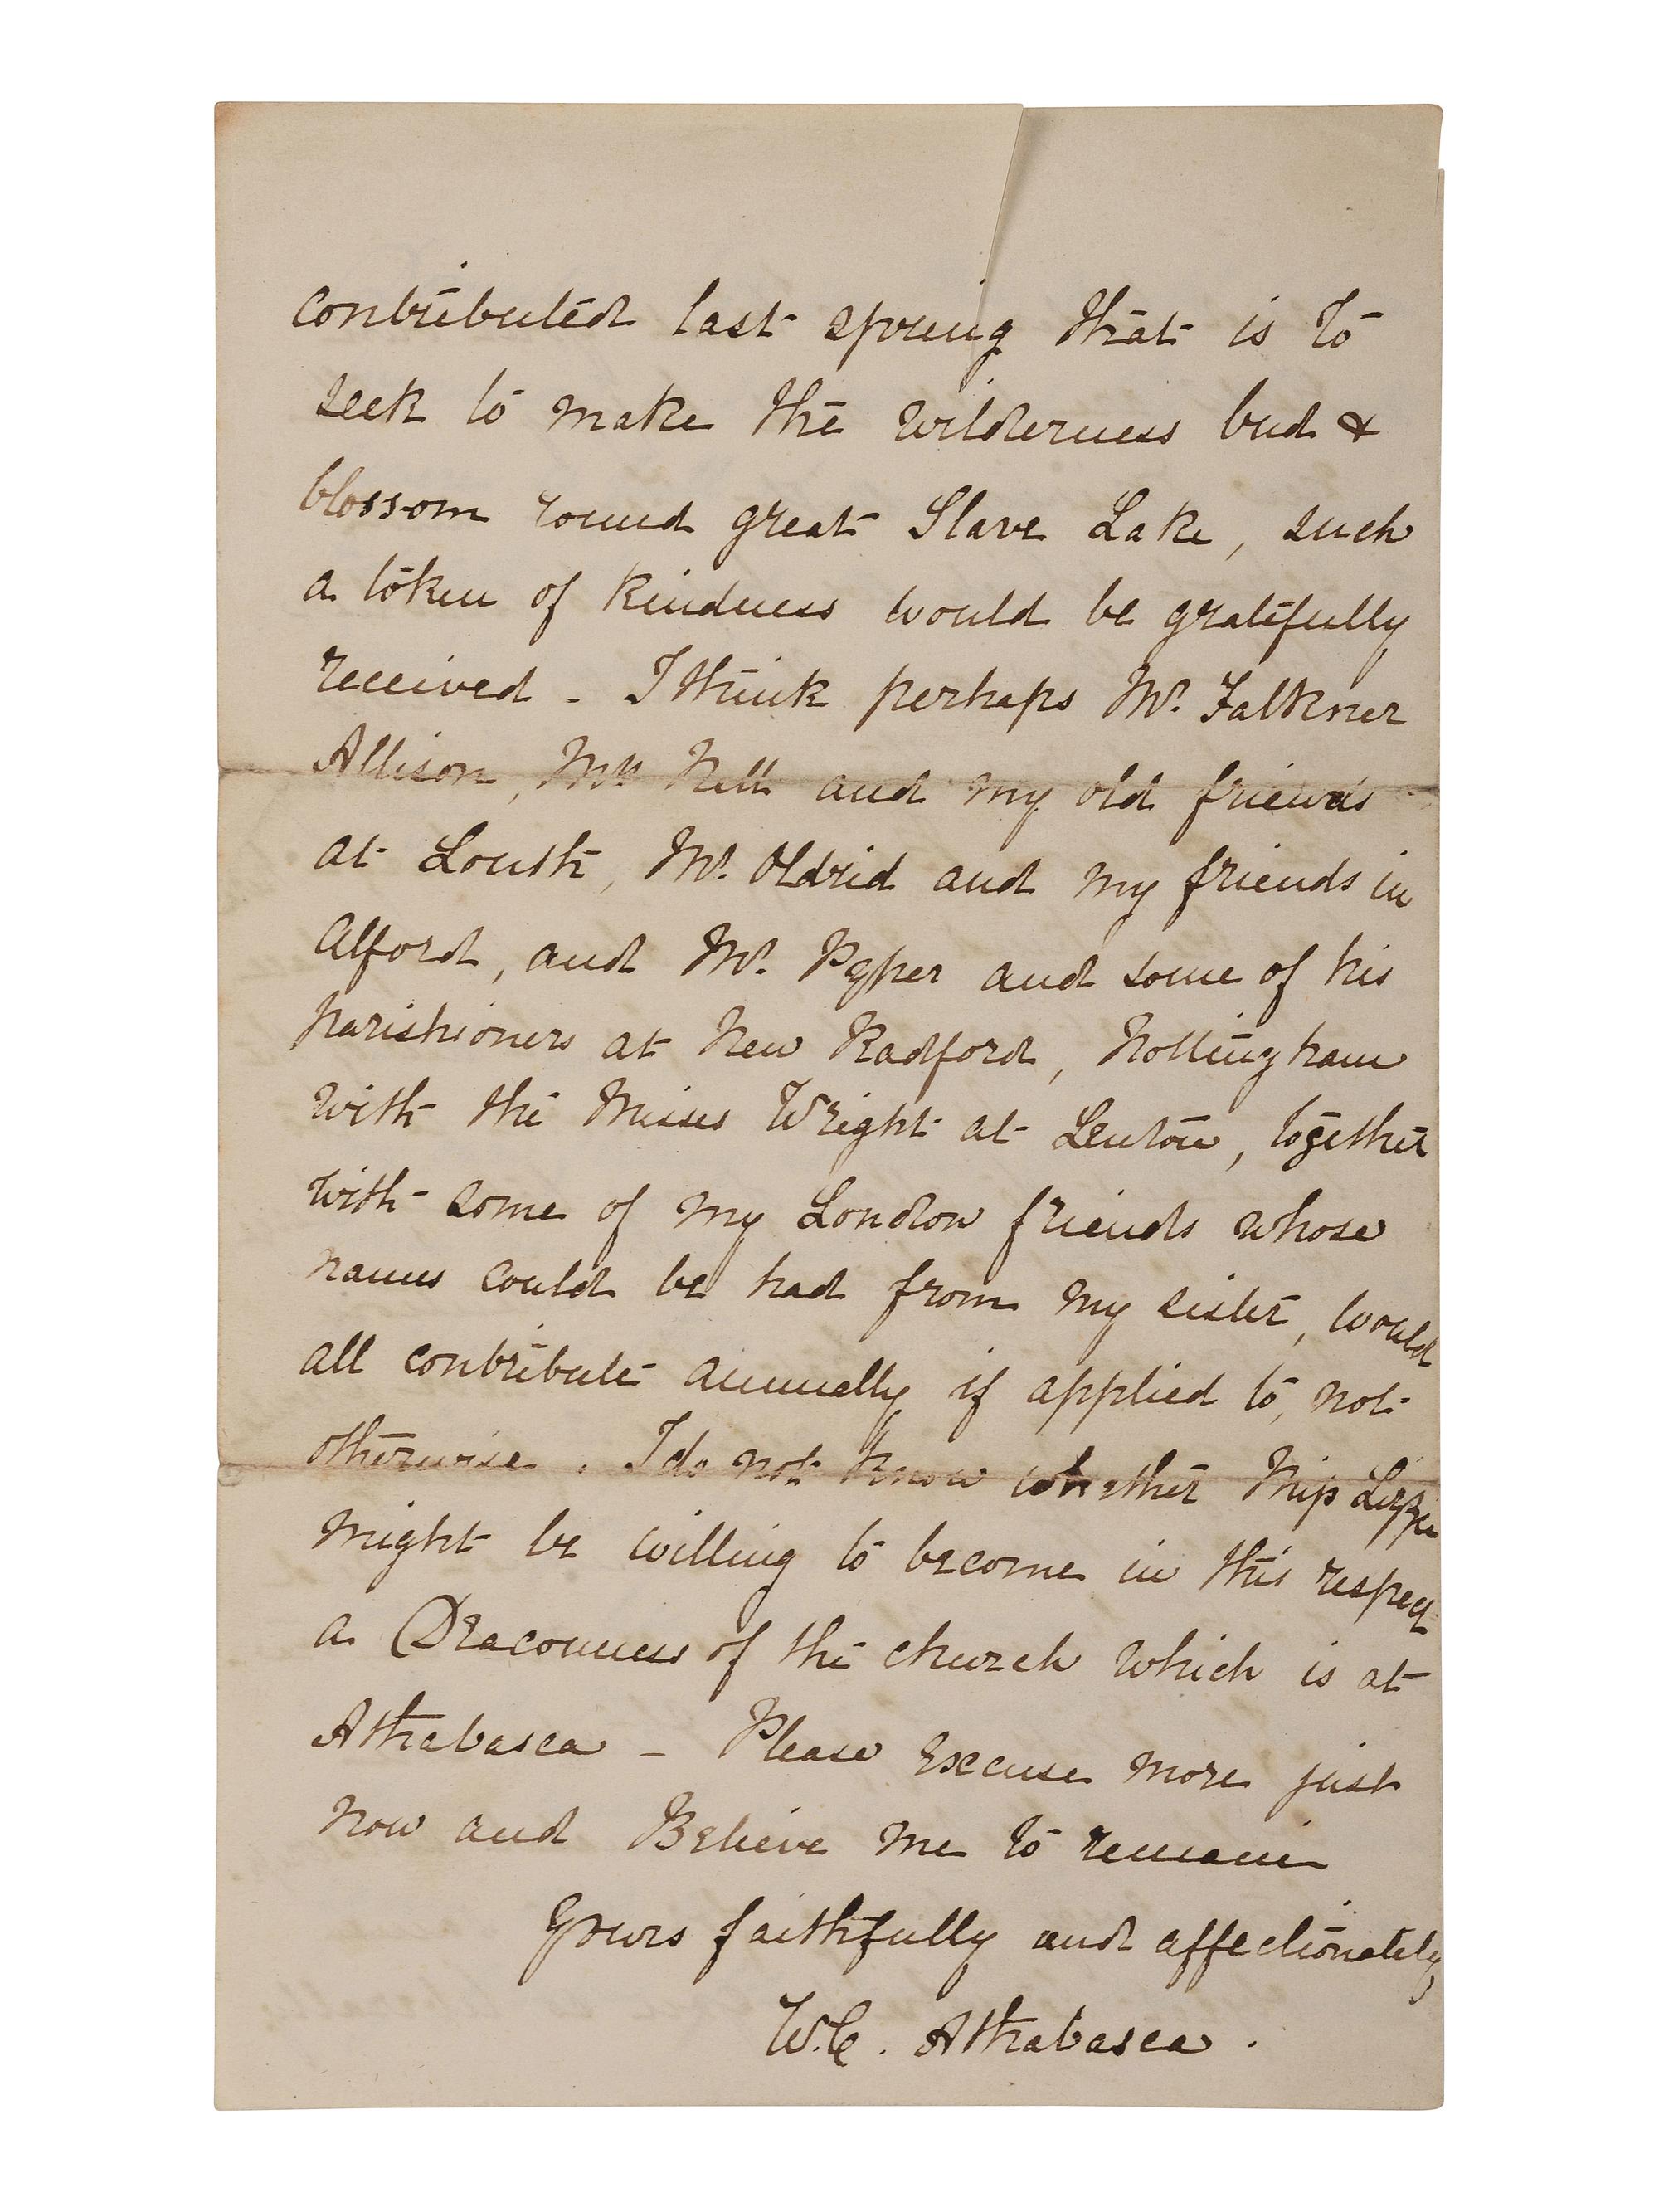 contributed last spring that is to
seek to make the wilderness bud &
blossom round great Slave Lake, such
a token of kindness would be gratefully
received - I think perhaps Mr. Falkner
Allison, Mrs and my old friends
at Louth, Mr. Oldrid and my friends in
Alford, and Mr. Pyper and some of his
parishioners at New Radford, Nottingham
with the Misses Wright at Lenton, together
with some of my London friends whose
names could be had from my sister, would
all contribute annually if applied to, not
otherwise. I do not know whether Miss
might be willing to become in this respect
a Deaconness of the church which is at
Athabasca - Please Excuse more just
now and Believe me to remain
Yours faithfully and affectionately
W.C. Athabasca.